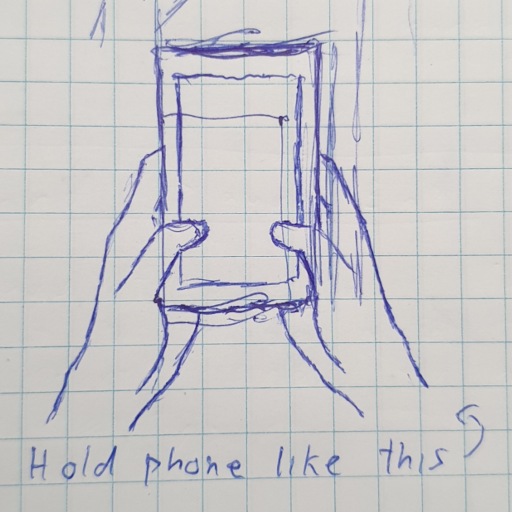 Hold phone like this